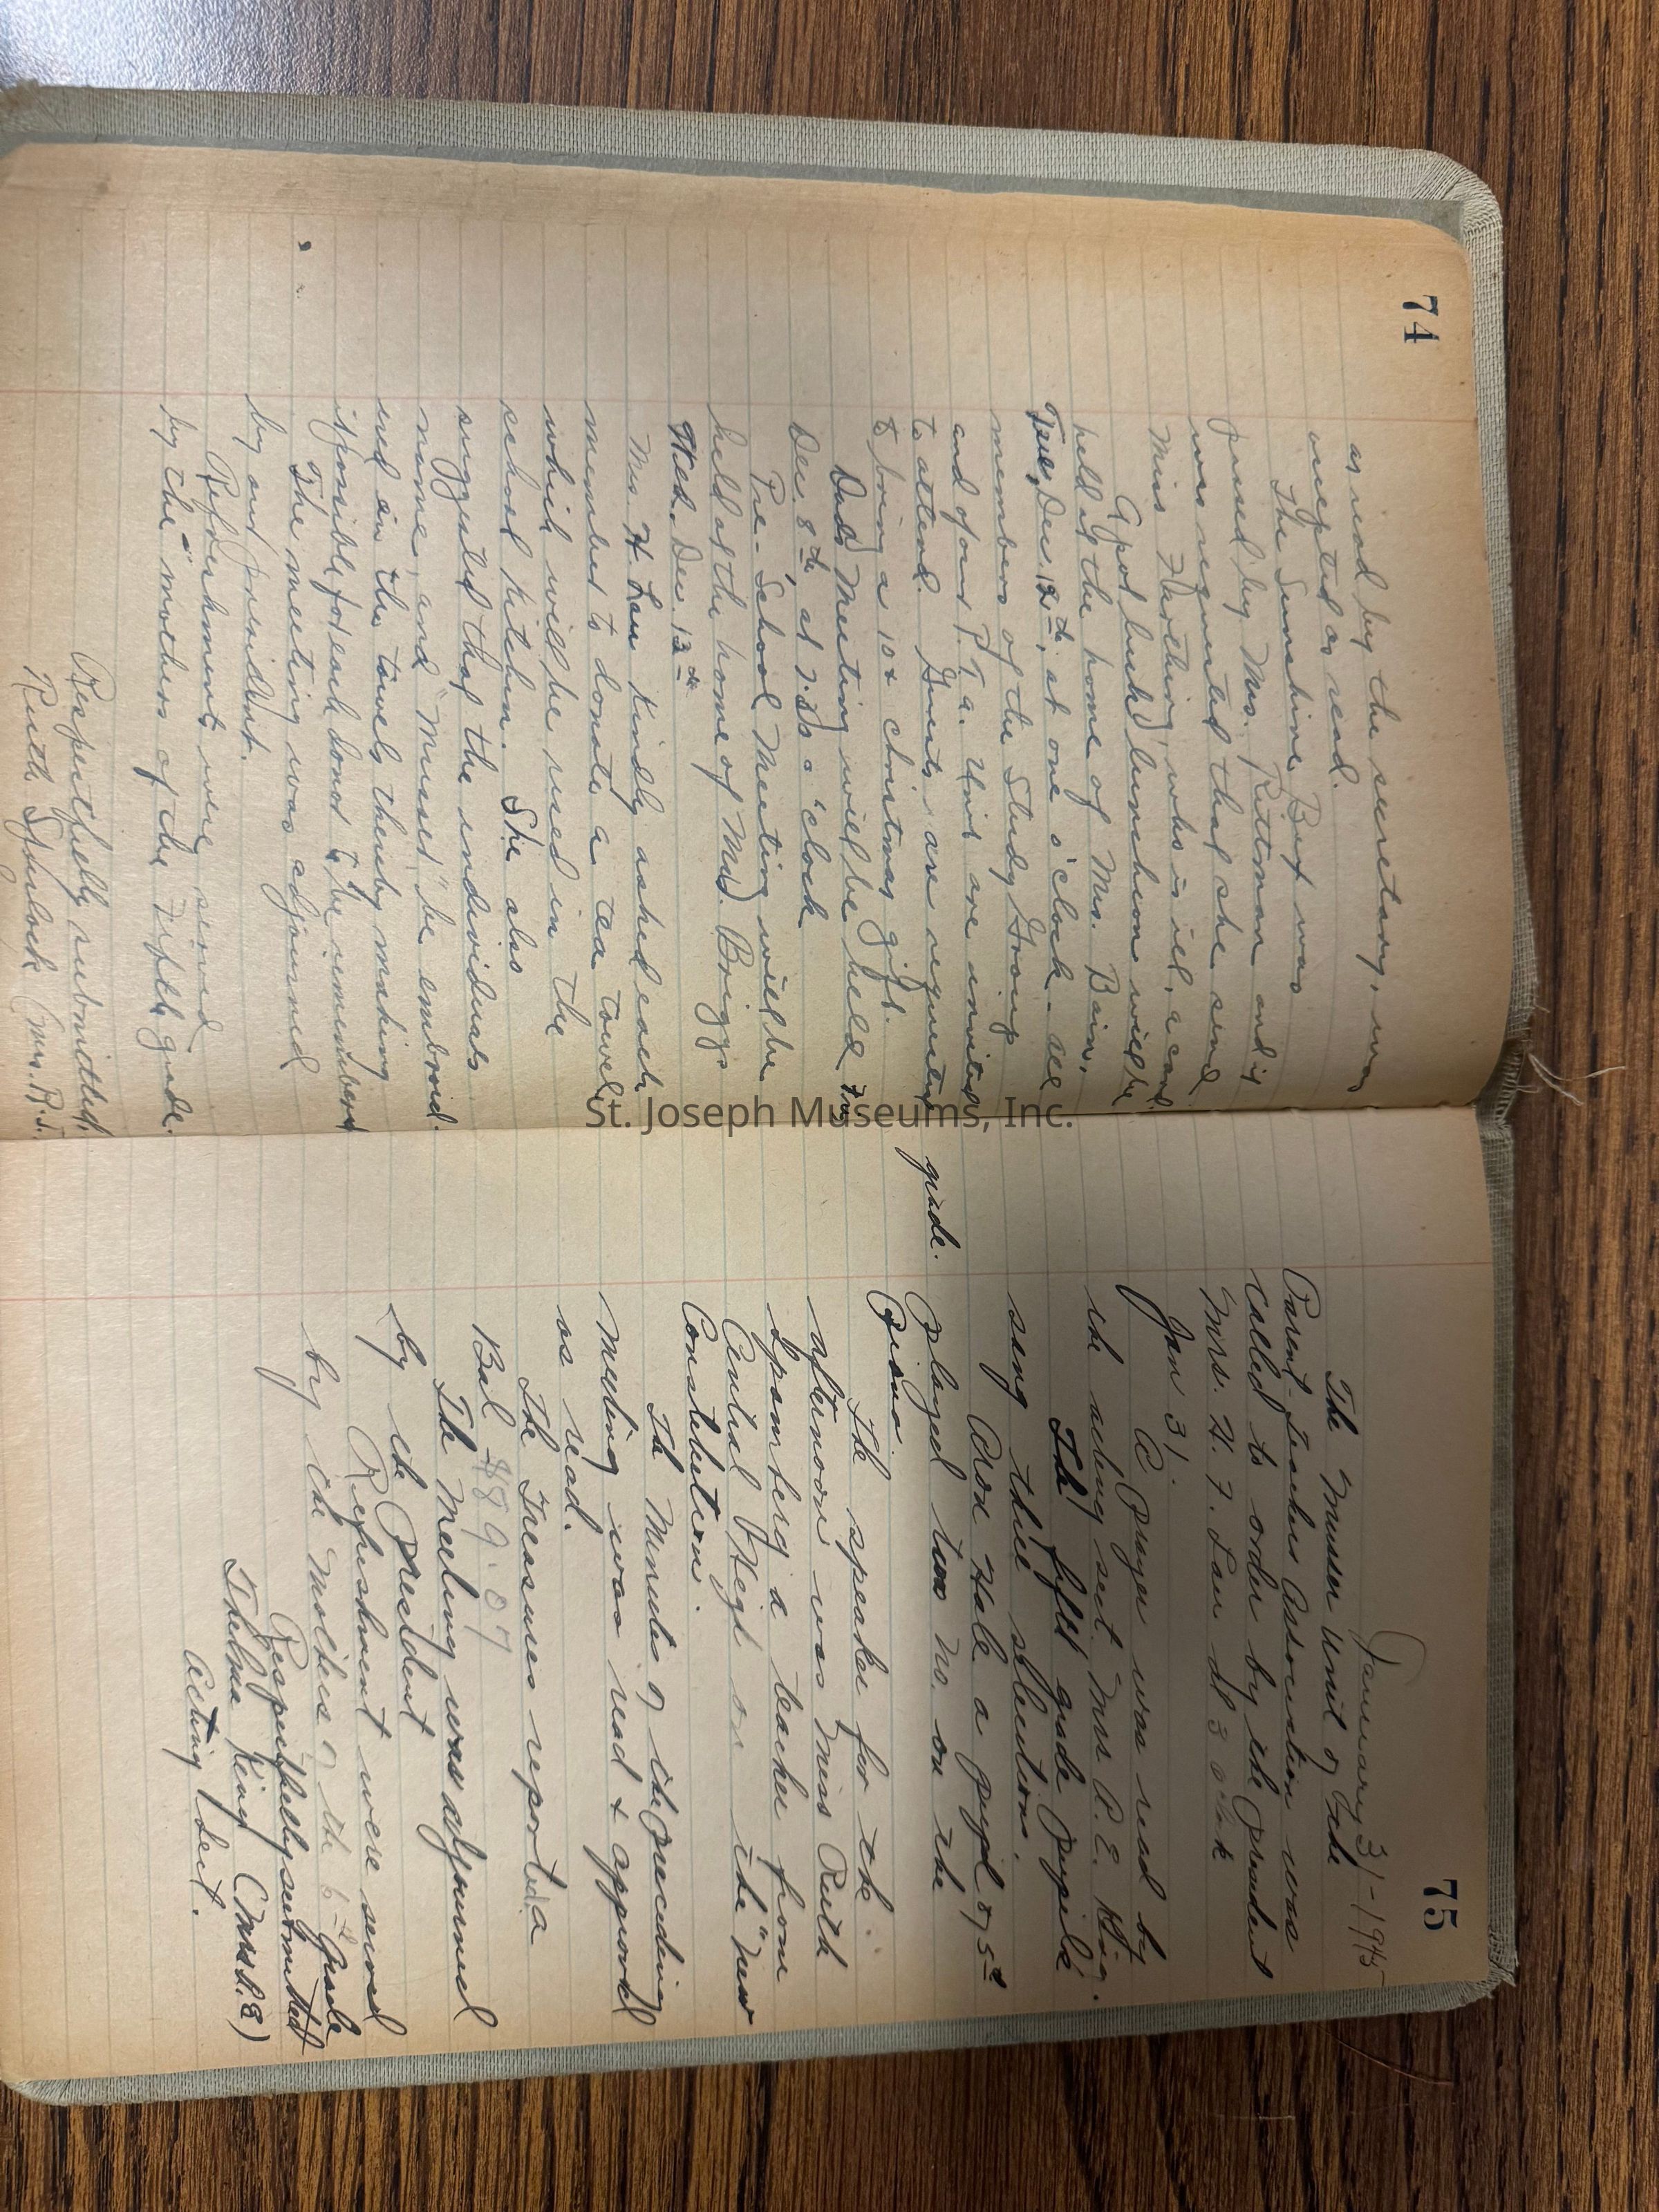 74
as read by the secretary, was
accepted as read.
The Sunshine Box was
passed by Mrs. Pittman and it
was requested that she send
Miss Farthing, who is ill, a card.
A pot luck luncheon will be
held at the home of Mrs. Bain,
Tues, Dec. 12th, at one o'clock - all
members of the Study Group
and of our P.T.A. Unit are invited
to attend. Guests are requested
to bring a 10¢ christmas gift.
Dads Meeting will be held Fri
Dec. 8th, at 7:30 o'clock
Pre-School Meeting will be
held at the home of Mrs. Briggs
Wed. Dec. 13th
Mrs. H. Lau kindly asked each
member to donate a tea towel
which will be used in the
school kitchen. She also
suggested that the individuals
name, and "Musser," be embroid-
ered on the towels thereby making
it possible for each donor to be remembered
The meeting was adjourned
by our president.
Refreshments were served
by the mothers of the fifth grade.
Respectfully submitted,
Ruth Spurlock (Mrs. R.J.
75
January 31-1945
The Musser Unit of the
Parent-Teacher Association was
called to order by the president
Mrs. H. F. Lau at 3 o'clock
Jan 31.
A Prayer was read by
the acting sect. Mrs A. E. King.
The fifth grade pupils
sang three selections.
Aron Hale a pupil of 5th
grade. played two no. on the
Piano.
The speaker for the
afternoon was Miss Ruth
Spamberg a teacher from
Central High on the "New
Constitution.
The Minutes of the preceding
meeting was read & approved
as read.
The Treasures reported a
Bal $89.07
The Meeting was adjourned
by the President
Refreshment were served
by the Mothers of the 6th Grade
Respectfully submitted
Thelma King (Mrs A. E)
Acting Sect.
St. Joseph Museums, Inc.